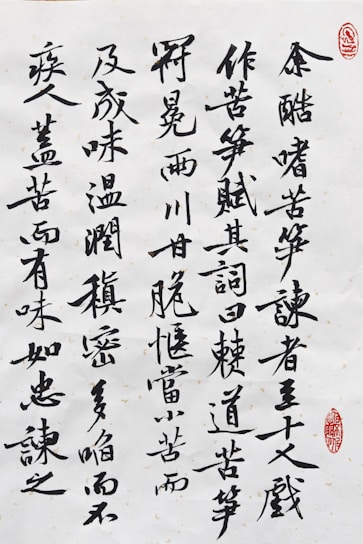 余酷嗜苦笋諫者至十人戲
作苦笋賦其詞曰僰道苦笋
冠冕兩川甘脆愜當小苦而
及成味温潤稹密多啗而不
疾人蓋苦而有味如忠諫之